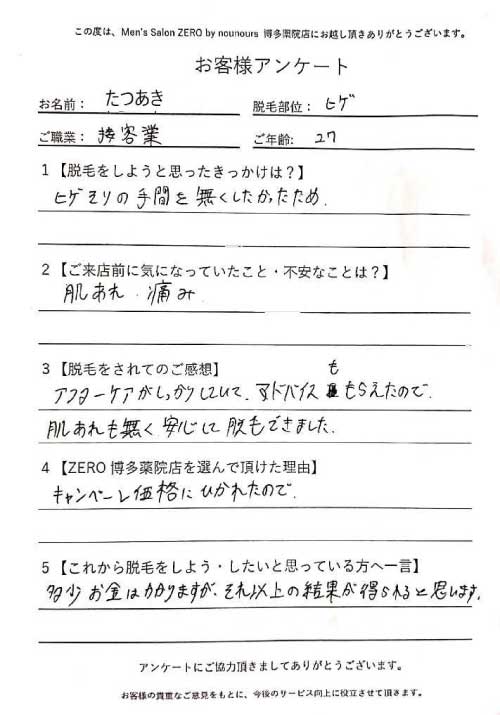 この度は、Men's Salon ZERO by nounours 博多薬院店にお越し頂きありがとうございます。
お客様アンケート
お名前： たつあき 脱毛部位： ヒゲ
ご職業： 接客業 ご年齢: 27
1 【脱毛をしようと思ったきっかけは？】
ヒゲソリの手間を無くしたかったため.
2 【ご来店前に気になっていたこと・不安なことは？】
肌あれ ・痛み
3 【脱毛をされてのご感想】
アフターケアがしっかりしていて、アドバイスももらえたので
肌あれも無く安心して脱もできました.
4 【ZERO 博多薬院店を選んで頂けた理由】
キャンペーン価格にひかれたので.
5 【これから脱毛をしよう・したいと思っている方へ一言】
多少お金はかかりますが、それ以上の結果が得られると思います.
アンケートにご協力頂きましてありがとうございます。
お客様の貴重なご意見をもとに、今後のサービス向上に役立させて頂きます。